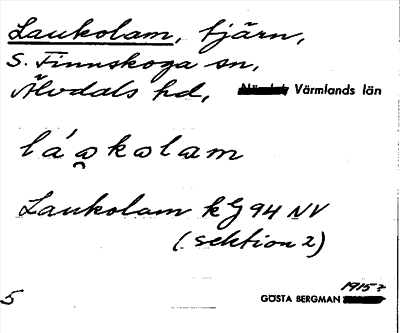 Laukolam, tjärn,
S. Finnskoga sn,
Älvdals hd, Värmlands län
Laukolam kG 94 NV
(sektion 2)
5
1915?
GÖSTA BERGMAN